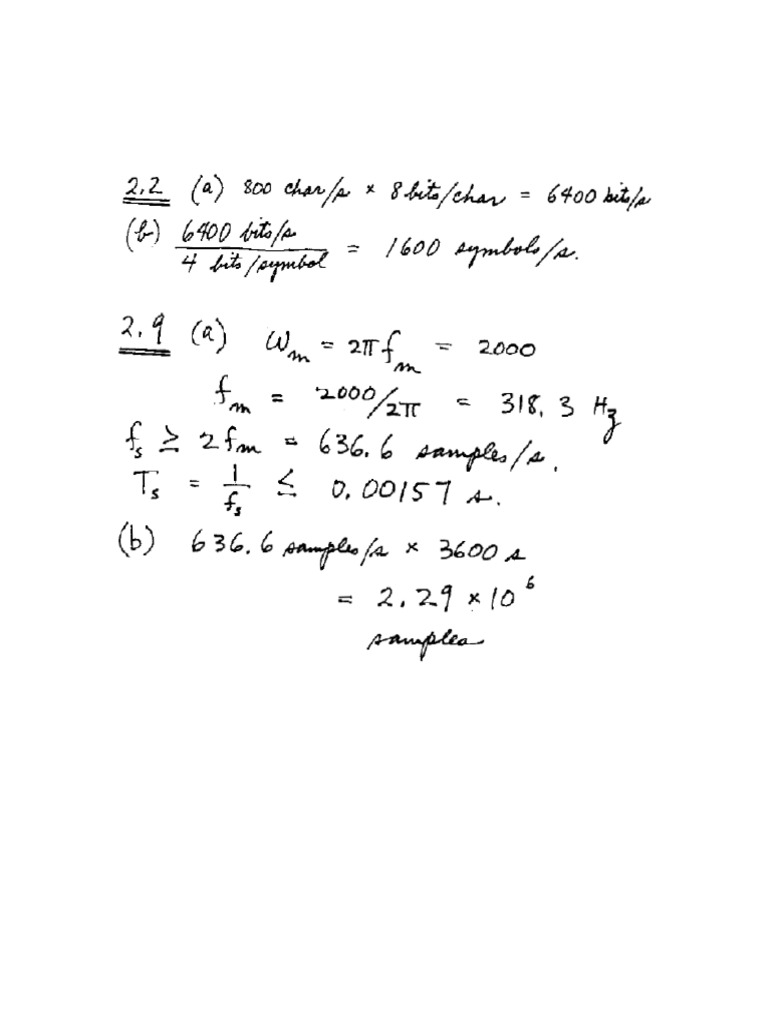 2.2 (a) 800 char/s × 8 bits/char = 6400 bits/s
(b) 6400 bits/s / 4 bits/symbol = 1600 symbols/s.
2.9 (a) ωm = 2πfm = 2000
fm = 2000/2π = 318.3 Hz
fs ≥ 2fm = 636.6 samples/s.
Ts = 1/fs ≤ 0.00157 s.
(b) 636.6 samples/s × 3600 s
= 2.29 × 10⁶
samples